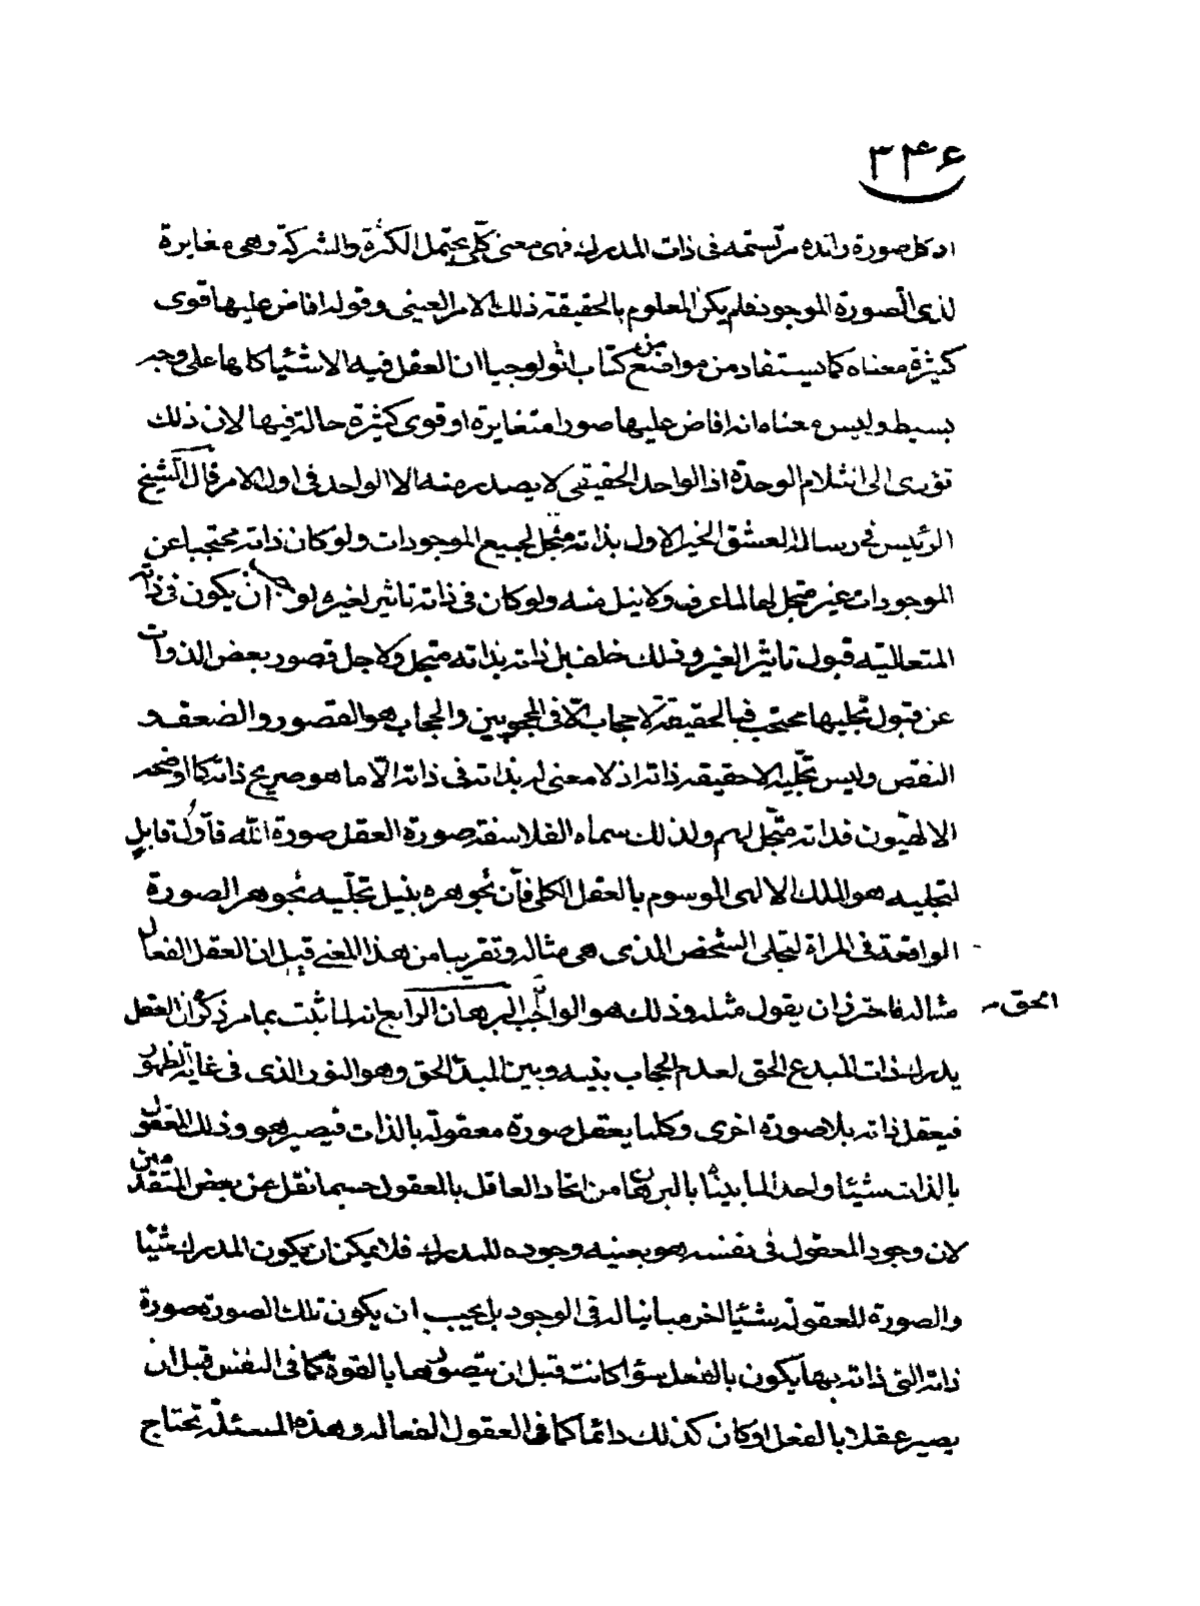 ۳۴۶
اذ كل صورة زائده مرتسمه فى ذات المدرك فهى معنى كلّى يحتمل الكثرة والشركة وهى مغايرة
لذى الصورة الموجود فلم يكن المعلوم بالحقيقة ذلك الامر العينى وقوله افاض عليها قوى
كثيرة معناه كما يستفاد من مواضع من كتاب اثولوجيا ان العقل فيه الاشياء كلها على وجه
بسيط وليس معناه انه افاض عليها صورا متغايرة او قوى كثيرة حالة فيها لان ذلك
تؤدى الى انثلام الوحدة اذ الواحد الحقيقى لا يصدر منه الا الواحد فى اول الامر قال الشيخ
الرئيس فى رسالة العشق الخير الاول بذاته متجل لجميع الموجودات ولو كان ذاته محتجبا عن
الموجودات غير متجل لها لما عرف ولا ينل منه ولو كان فى ذاته تاثير لغيره لوجب ان يكون فى ذاته
المتعالية قبول تاثير الغير وذلك خلف بل ذاته بذاته متجل ولاجل قصور بعض الذوات
عن قبول تجليها محتجب فبالحقيقة لا حجاب الّا فى المحجوبين والحجاب هو القصور والضعف و
النقص وليس تجلّيه الا حقيقة ذاته اذ لا معنى له بذاته فى ذاته الّا ما هو صريح ذاته كما اوضحه
الالهيّون فذاته متجّل لهم ولذلك سماه الفلاسفة صورة العقل صورة الله فاوّل قابل
لتجليه هو الملك الالهى الموسوم بالعقل الكلى فانّ تجوهره بنيل تجلّيه تجوهر الصورة
الواقعة فى المراة لتجلى الشخص الذى هى مثاله وتقريبا من هذا المعنى قيل ان العقل الفعال
مثاله فاحترز ان يقول مثله وذلك هو الواجب الحق البرهان الرابع انه لما ثبت بما مر ذكره ان العقل
يدرك ذات المبدع الحق لعدم الحجاب بينه وبين المبدء الحق وهو النور الذى فى غاية الظهور
فيعقل ذاته بلا صورة اخرى وكلما يعقل صورة معقولة بالذات فيصير هو وذلك المعقول
بالذات شيئا واحدا لما بيناه بالبرهان من اتحاد العاقل بالمعقول حسبما نقل عن بعض المتقدمين
لان وجود المعقول فى نفسه هو بعينه وجوده للمدرك فلا يمكن ان يكون المدرك شيئا
والصورة المعقولة شيئا اخر مباينا له فى الوجود بل يجب ان يكون تلك الصورة صورة
ذاته التى ذاته بها يكون بالفعل سواء كانت قبل ان يتصور بها بالقوة كما فى النفس قبل ان
يصير عقلا بالفعل او كان كذلك دائما كما فى العقول الفعاله وهذه المسئلة تحتاج